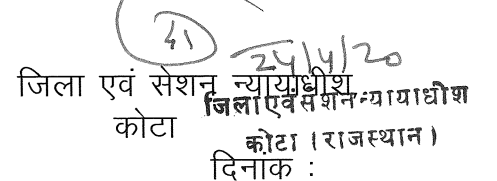 41
24/4/20
जिला एवं सेशन न्यायाधीश
जिला एवं सेशन न्यायाधीश
कोटा
कोटा (राजस्थान)
दिनांक :